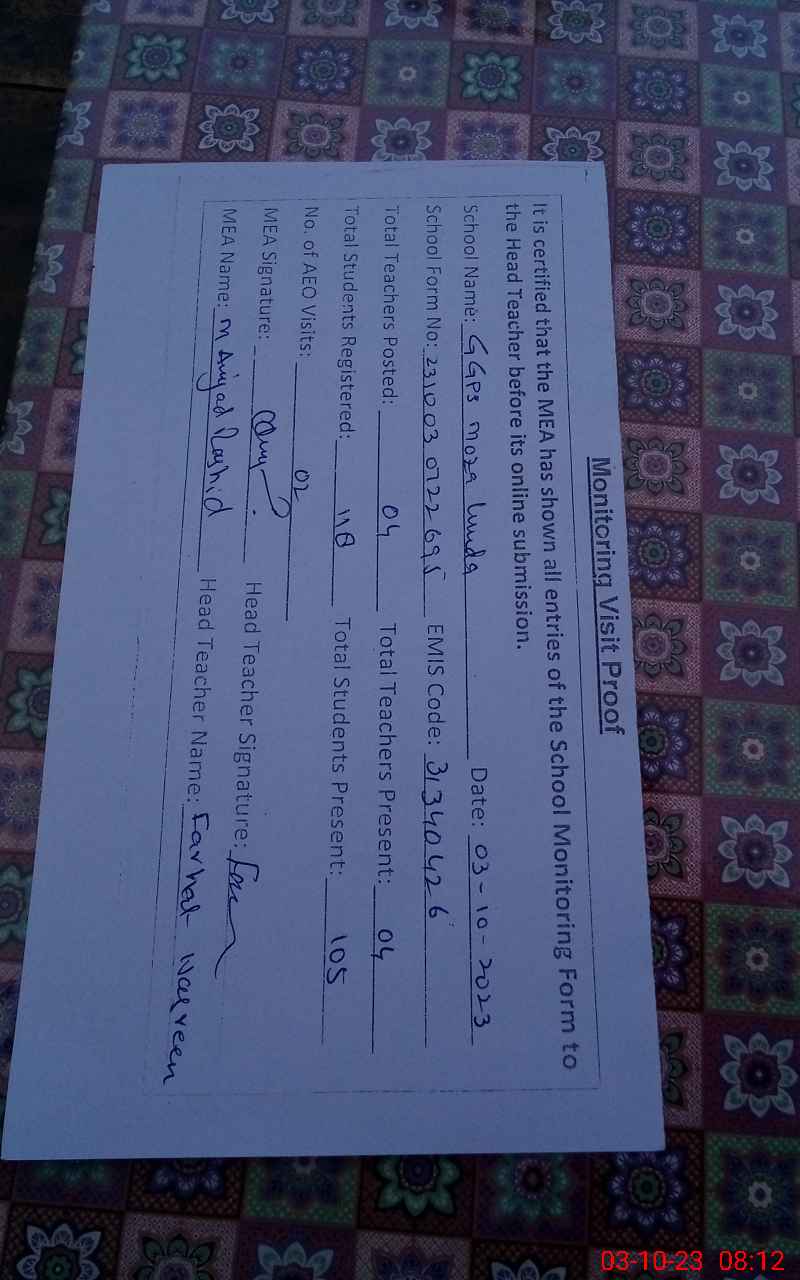 Monitoring Visit Proof
It is certified that the MEA has shown all entries of the School Monitoring Form to
the Head Teacher before its online submission.
School Name: GGPS moza Date: 03-10-2023
School Form No: 2310030722695 EMIS Code: 31340426
Total Teachers Posted: 04 Total Teachers Present: 04
Total Students Registered: 118 Total Students Present: 105
No. of AEO Visits: 02
MEA Signature: Head Teacher Signature:
MEA Name: M Rashid Head Teacher Name: Farhat
03-10-23 08:12